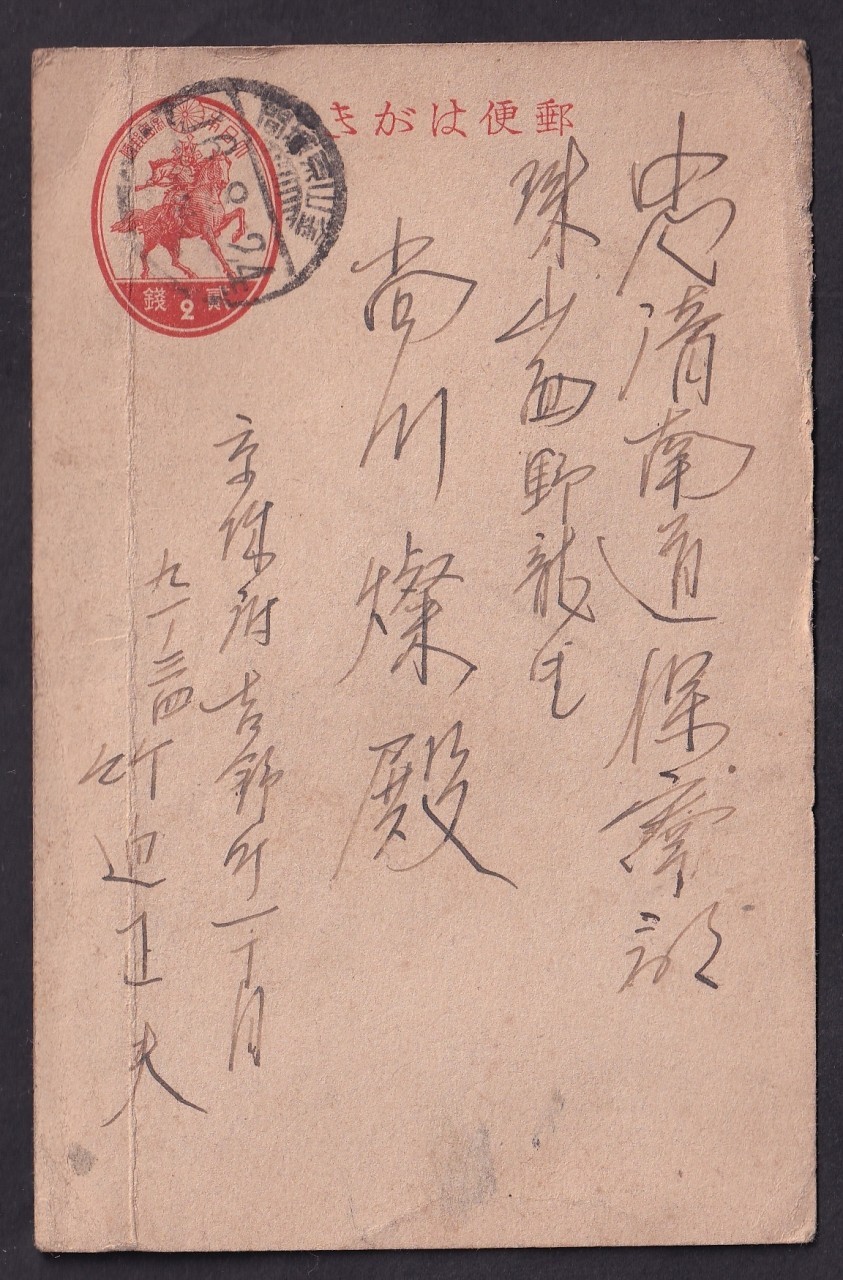 郵便はがき
忠清南道保寧郡
珠山面野龍里
尚川燦殿
京城府吉野町一丁目
九一ノ三四
竹迫正夫
貳錢
2